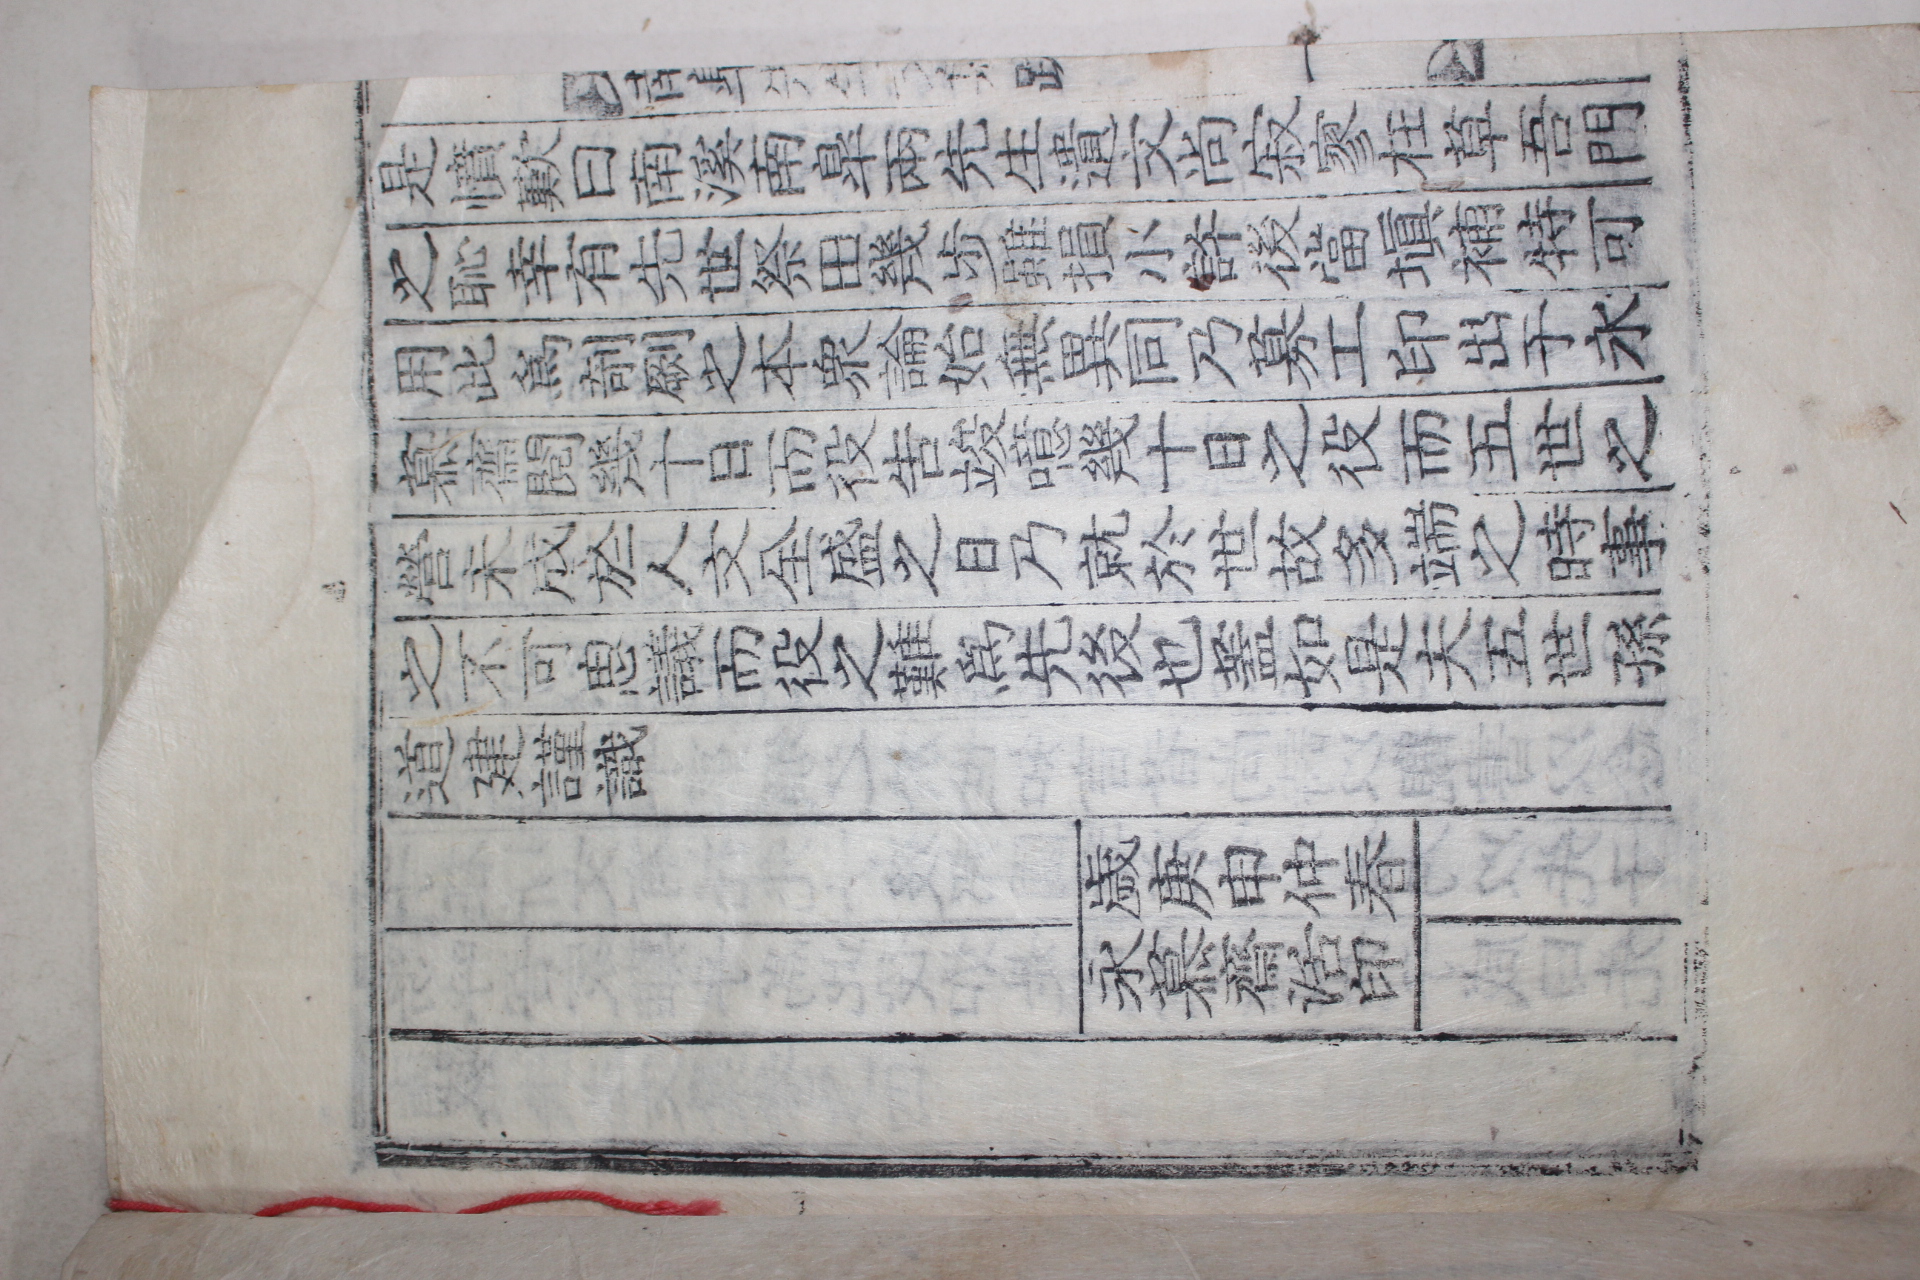 南皐先生文集 一
是憤歎曰南溪南皐兩先生遺文尚寂寥在草吾門
之恥幸有先世祭田幾步雖損小許後當塡補特可
用此爲剞劂之本衆論始無異同乃募工印出于永
慕齋閱幾十日而役告竣噫幾十日之役而五世之
營未成於人文全盛之日乃就於世故多端之時事
之不可思議而役之難爲先後也蓋如是夫五世孫
道建謹識
歲庚申仲春
永慕齋活印